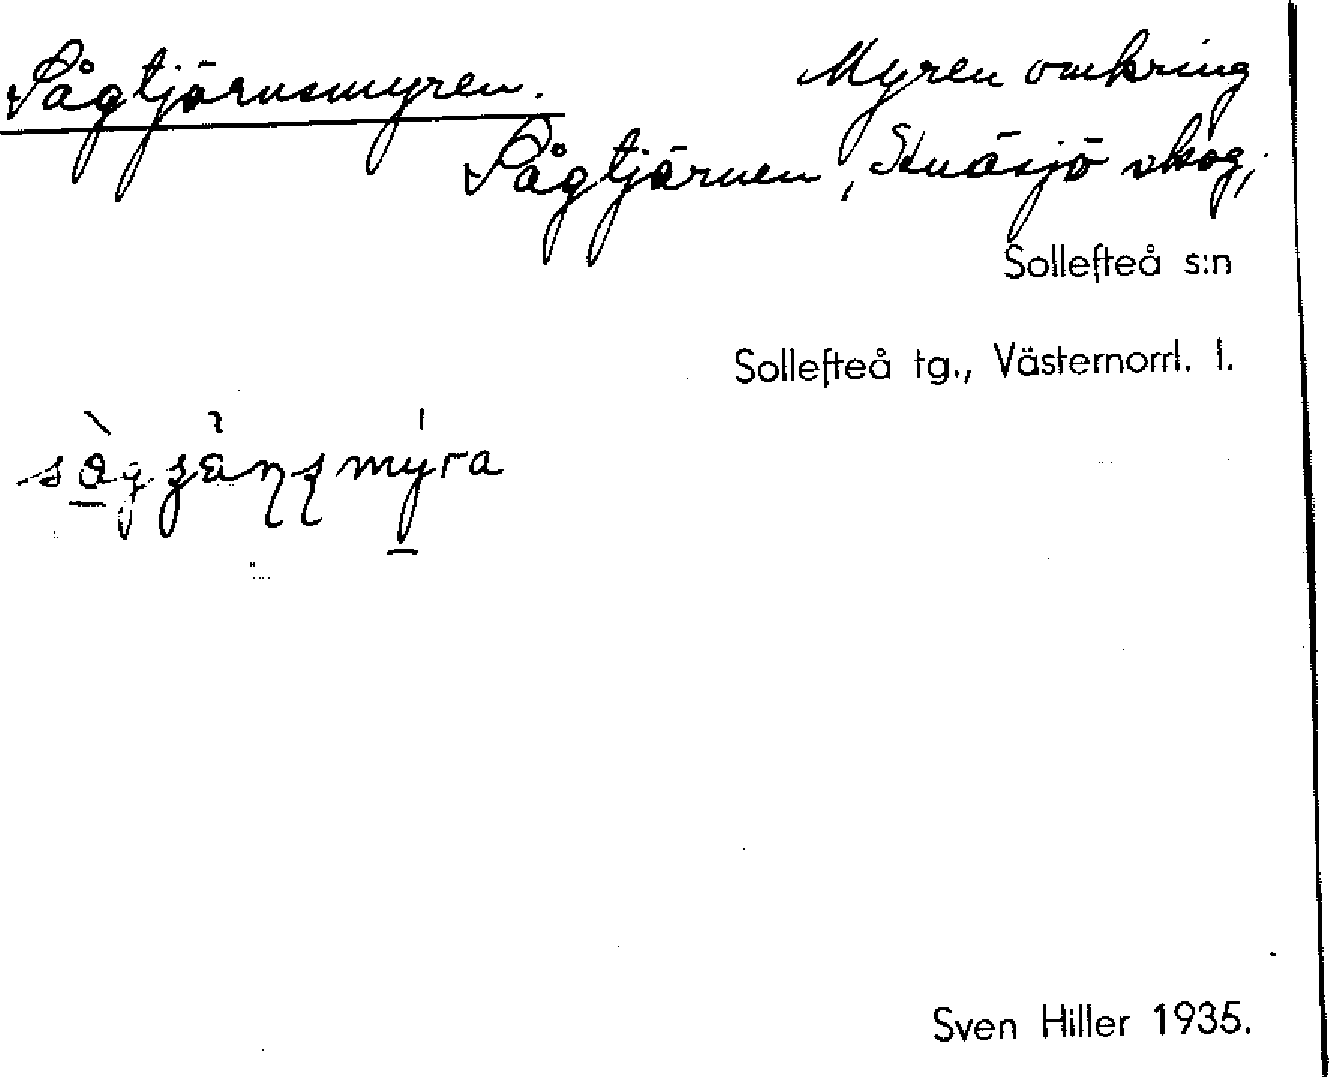 Sågtjärnsmyren. Myren omkring
Sågtjärnen, skog,
Sollefteå s:n
Sollefteå tg., Västernorrl. l.
Sven Hiller 1935.